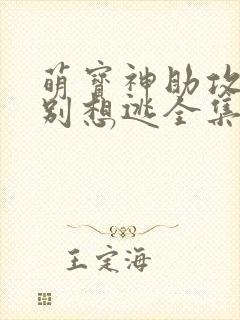 萌宝神助攻
别想逃全集
王定海